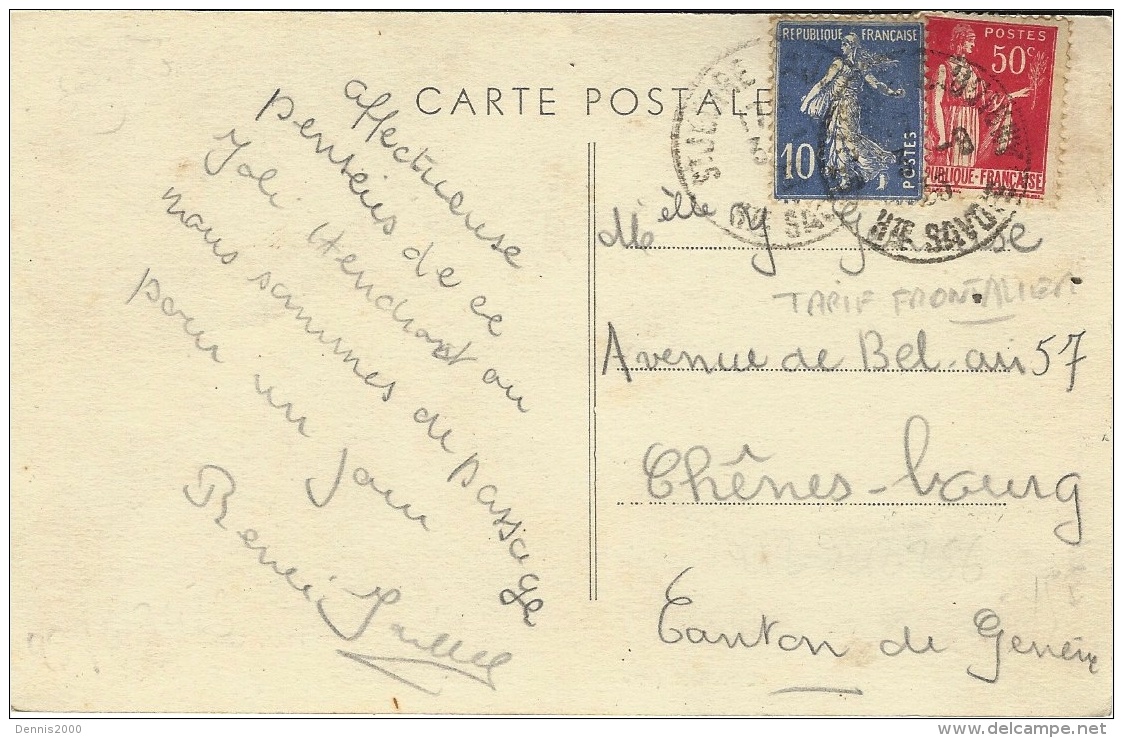 CARTE POSTALE
REPUBLIQUE FRANÇAISE
10
POSTES
POSTES
50c
REPUBLIQUE-FRANÇAISE
HTE SAVOIE
affectueuse
pensées de ce
Joli
nous sommes de passage
pour un jour
Mèlle
TARIF FRONTALIER
Avenue de Bel-air 57
Chênes-bourg
Canton de Genève
Dennis2000
www.delcampe.net